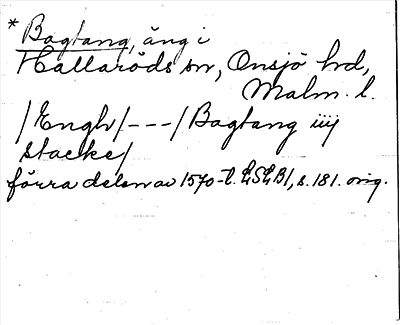 * Bagtang, äng i
Hallaröds sn, Onsjö hrd,
Malm. l.
/Engh/---/Bagtang iiij
stacke/
förra delen av 1570-t. LSLB1, s. 181. orig.